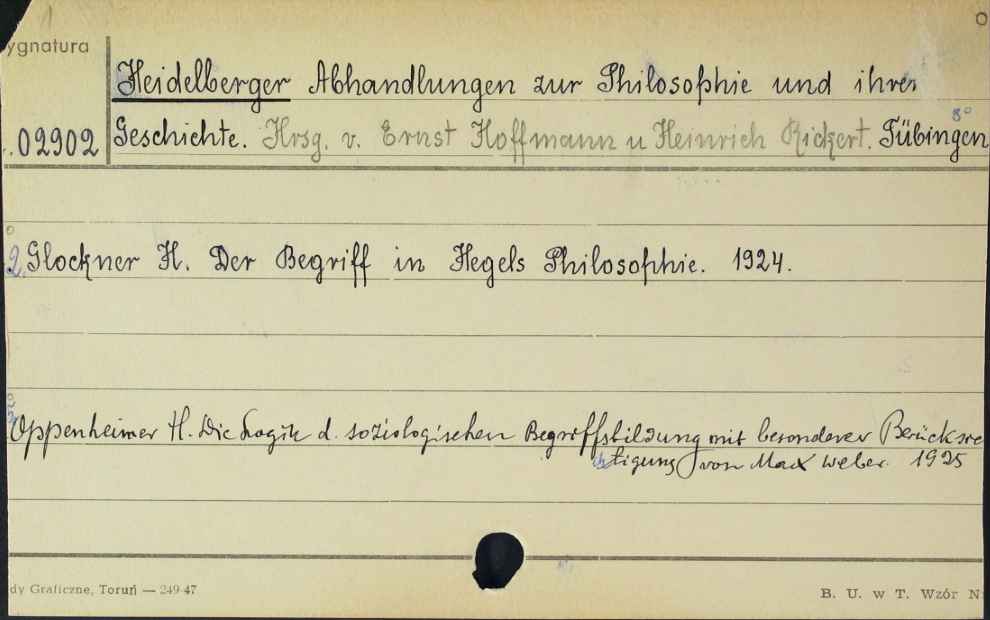 ygnatura
Heidelberger Abhandlungen zur Philosophie und ihrer
8°
02902 Geschichte. Hrsg. v. Ernst Hoffmann u Heinrich Rickert. Tübingen
2. Glockner H. Der Begriff in Hegels Philosophie. 1924.
Oppenheimer H. Die Logik d. soziologischen Begriffsbildung mit besonderer Berücksi
chtigung von Max Weber. 1925
dy Graficzne, Toruń — 249-47
B. U. w T. Wzór N